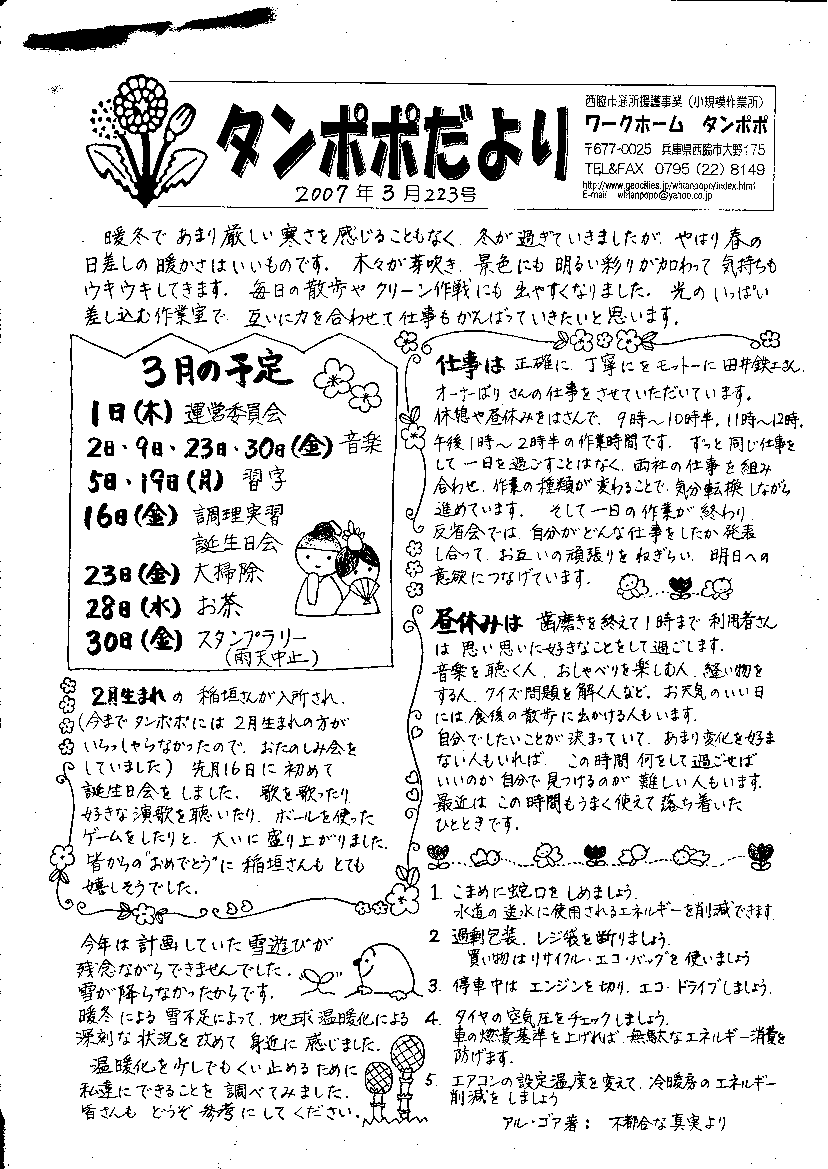 タンポポだより
2007年3月223号
西脇市通所援護事業（小規模作業所）
ワークホーム タンポポ
〒677-0025 兵庫県西脇市大野175
TEL&FAX 0795（22）8149
http://www.geocities.jp/whtanpopo/index.html
E-mail whtanpopo@yahoo.co.jp
暖冬で あまり厳しい寒さを感じることもなく、冬が過ぎていきましたが、やはり春の
日差しの暖かさはいいものです。 木々が芽吹き、景色にも明るい彩りが加わって気持ちも
ウキウキしてきます。 毎日の散歩やクリーン作戦にも出やすくなりました。 光のいっぱい
差し込む作業室で、互いに力を合わせて仕事もがんばっていきたいと思います。
3月の予定
1日(木) 運営委員会
2日・9日・23日・30日(金) 音楽
5日・19日(月) 習字
16日(金) 調理実習
誕生日会
23日(金) 大掃除
28日(水) お茶
30日(金) スタンプラリー
(雨天中止)
2月生まれの 稲垣さんが入所され、
(今までタンポポには2月生まれの方が
いらっしゃらなかったので、おたのしみ会を
していました) 先月16日に初めて
誕生日会をしました。 歌を歌ったり、
好きな演歌を聴いたり、ボールを使った
ゲームをしたりと、大いに盛り上がりました。
皆からの"おめでとう"に稲垣さんもとても
嬉しそうでした。
今年は計画していた雪遊びが
残念ながらできませんでした。
雪が降らなかったからです。
暖冬による雪不足によって、地球温暖化による
深刻な状況を改めて身近に感じました。
温暖化を少しでもくい止めるために
私達にできることを調べてみました。
皆さんもどうぞ参考にしてください。
仕事は 正確に、丁寧にをモットーに田井鉄工さん、
オーナーばりさんの仕事をさせていただいています。
休憩や昼休みをはさんで、9時～10時半、11時～12時、
午後1時～2時半の作業時間です。 ずっと同じ仕事を
して一日を過ごすことはなく、両社の仕事を組み
合わせ、作業の種類が変わることで、気分転換しながら
進めています。 そして一日の作業が終わり、
反省会では、自分がどんな仕事をしたか発表
し合って、お互いの頑張りをねぎらい、明日への
意欲につなげています。
昼休みは 歯磨きを終えて1時まで利用者さん
は思い思いに好きなことをして過ごします。
音楽を聴く人、おしゃべりを楽しむ人、縫い物を
する人、クイズ問題を解く人など。お天気のいい日
には、食後の散歩に出かける人もいます。
自分でしたいことが決まっていて、あまり変化を好ま
ない人もいれば、この時間何をして過ごせば
いいのか自分で見つけるのが難しい人もいます。
最近はこの時間もうまく使えて落ち着いた
ひとときです。
1. こまめに蛇口をしめましょう。
水道の送水に使用されるエネルギーを削減できます。
2 過剰包装、レジ袋を断りましょう。
買い物はリサイクル・エコ・バッグを使いましょう
3. 停車中はエンジンを切り、エコ・ドライブしましょう。
4. タイヤの空気圧をチェックしましょう。
車の燃費基準を上げれば、無駄なエネルギー消費を
防げます。
5. エアコンの設定温度を変えて、冷暖房のエネルギー
削減をしましょう
アル・ゴア著： 不都合な真実より